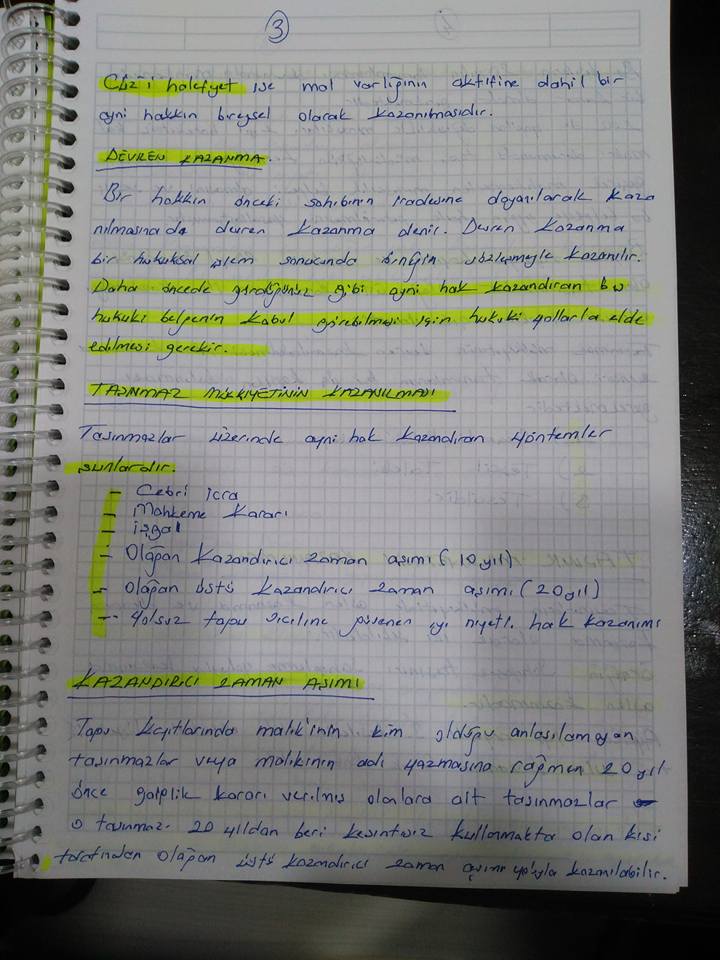 3
Cüz'i halefiyet ise mal varlığının aktifine dahil bir
ayni hakkın bireysel olarak kazanılmasıdır.
DEVREN KAZANMA.
Bir hakkın önceki sahibinin iradesine dayanılarak kaza
nılmasına da devren kazanma denir. Devren kazanma
bir hukuksal işlem sonucunda örneğin sözleşmeyle kazanılır.
Daha öncede gördüğümüz gibi ayni hak kazandıran bu
hukuki belgenin kabul görebilmesi için hukuki yollarla elde
edilmesi gerekir.
TAŞINMAZ MÜLKİYETİNİN KAZANILMASI
Taşınmazlar üzerinde ayni hak kazandıran yöntemler
şunlardır.
- Cebri icra
- Mahkeme Kararı
- işgal
- Olağan kazandırıcı zaman aşımı (10 yıl)
- olağan üstü kazandırıcı zaman aşımı (20 yıl)
- Yolsuz tapu siciline güvenen iyi niyetli hak kazanımı
KAZANDIRICI ZAMAN AŞIMI
Tapu kayıtlarında malik'inin kim olduğu anlaşılamayan
taşınmazlar veya malikinin adı yazmasına rağmen 20 yıl
önce gaiplik kararı verilmiş olanlara ait taşınmazlar
o taşınmazı 20 yıldan beri kesintisiz kullanmakta olan kişi
tarafından olağan üstü kazandırıcı zaman aşımı yoluyla kazanılabilir.